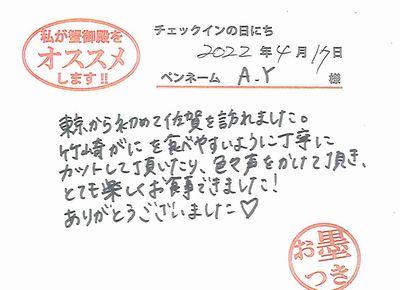 私が蟹御殿を
オススメ
します!!
チェックインの日にち
2022年4月17日
ペンネーム A.Y 様
東京から初めて佐賀を訪れました。
竹崎がにを食べやすいように丁寧に
カットして頂いたり、色々声をかけて頂き、
とても楽しくお食事できました!
ありがとうございました♡
お墨
つき